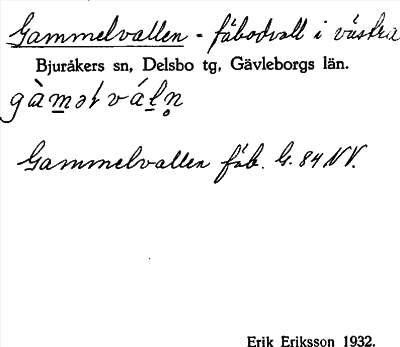 Gammelvallen - fäbodvall i västra
Bjuråkers sn, Delsbo tg, Gävleborgs län.
gàm̲əɫ vál̲n̥
Gammelvallen fäb. G. 84 NV.
Erik Eriksson 1932.